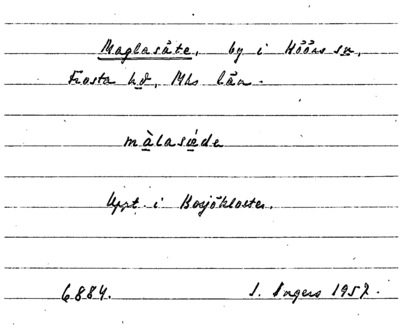 Maglasäte, by i Höörs sn,
Frosta hd, Mhs län.
màlasǽde
Uppt. i Bosjökloster.
6884. I. Ingers 1957.